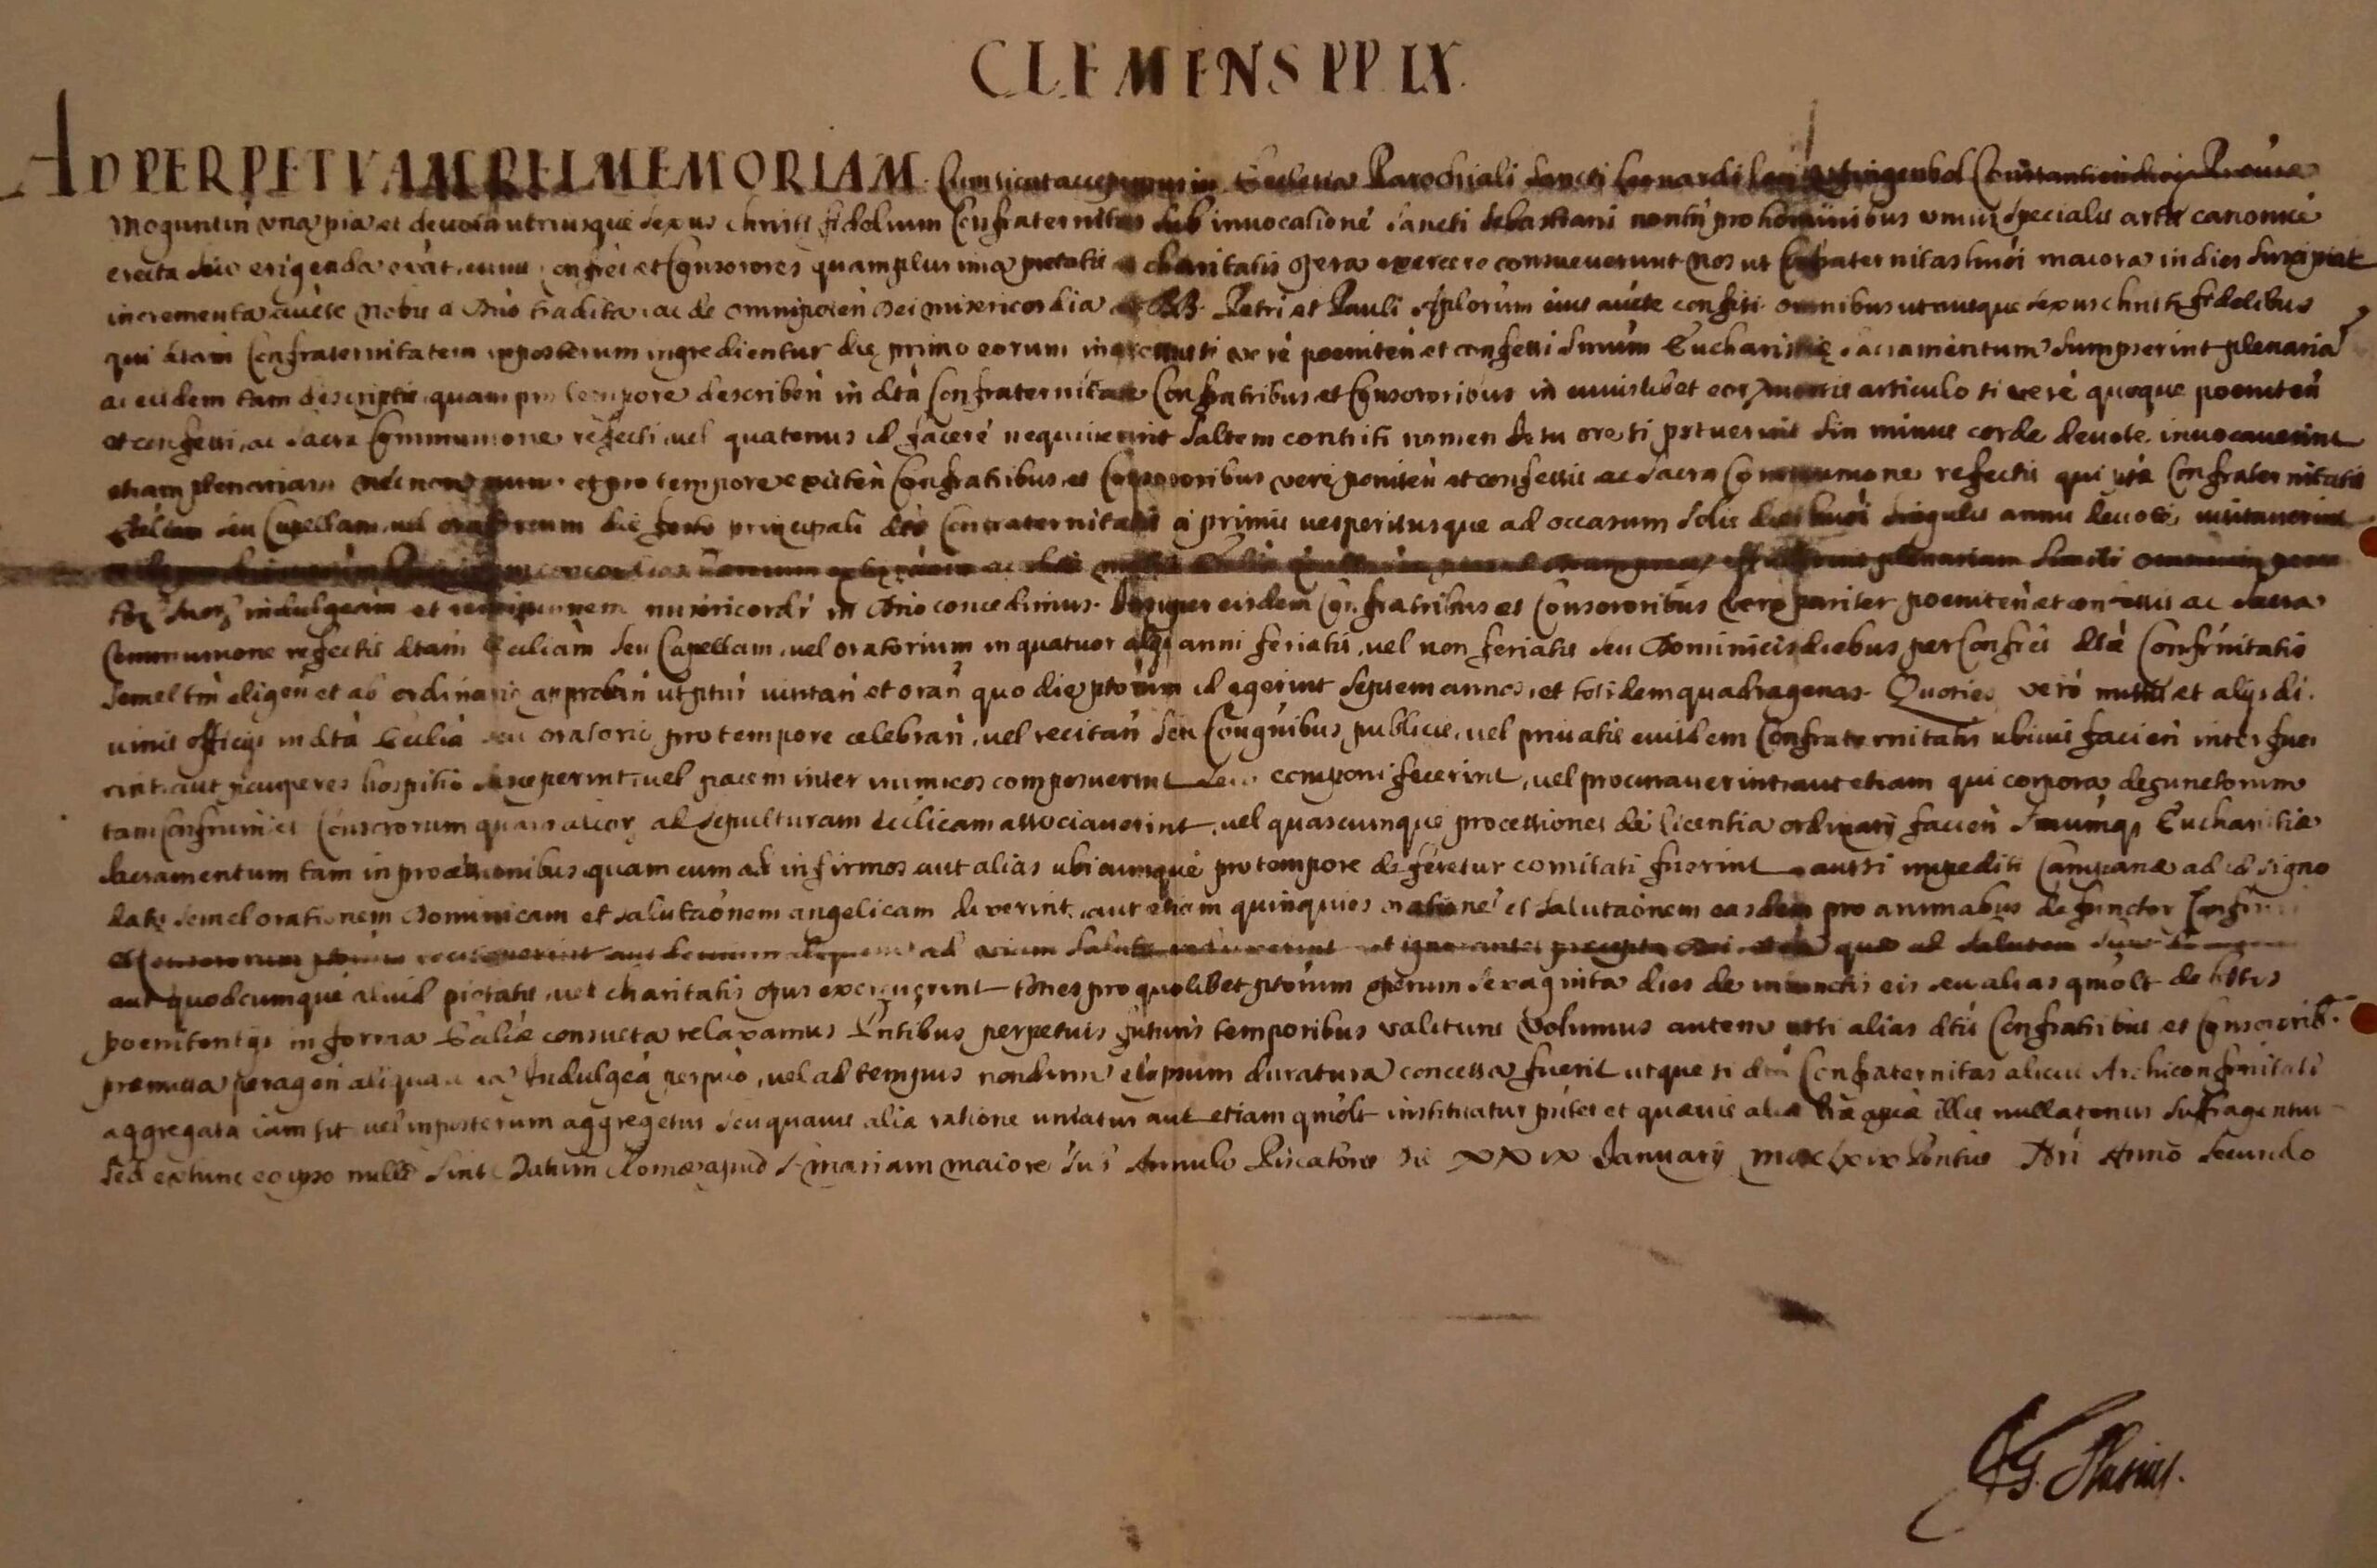 CLEMENS PP IX.
AD PERPETVAM REI MEMORIAM. Cum sicut accepimus in Ecclesia Parochiali Sancti Leonardi Ingenbol Constantien Provae
Moguntin una pia et devota utriusque sexus christi fidelium Confraternitas sub invocatione sancti Sebastiani non tn pro hominibus unius specialis artis canonicé
erecta sive erigenda exàt, cuius confrés et Consorores quamplurima pietatis et charitatis opera exercere consueverunt Nos ut Confraternitas hmói maiora in dies suscipiat
incrementa auctte Nobis a Dno tradita, ac de omnipoten Dei misericordia ac BB. Petri et Pauli Aplorum eius auctte confisi omnibus utriusque sexus christi fidelibus
qui dtam Confraternitatem inposterum ingredientur die primo eorum ingressus si veré poeniten et confessi Smum Eucharistiæ sacramentum sumpserint plenariã
ac eisdem tam descriptis, quam pro tempore describen in dta Confraternitate Confratribus et Consororibus in cuiuslibet eor mortis articulo si veré quoque poeniten
et confessi, ac sacra Communione refecti, vel quatenus id facere nequiverint saltem contriti nomen Jesu ore si potuerint sin minus corde devote invocaverint
etiam plenariam nec non nunc et pro tempore existen Confratribus et Consororibus veré poeniten et confessis ac sacra Communione refectis qui dtæ Confraternitatis
Ecclam seu Capellam, vel oratorium die festo principali dtæ Confraternitatis à primis vesperis usque ad occasum solis diei hmói singulis annis devote visitaverint
concordia haeresum extirpaõe ac plenariam omnium pecca
tor suor indulgeam et remissionem misericordr in Dno concedimus. Insuper eisdem Confratribus et Consororibus veré pariter poeniten et confessis ac sacra
Communione refectis dtam Eccliam seu Capellam, vel oratorium in quatuor aliis anni feriatis, vel non feriatis seu Dominicis diebus per Confrés dtæ Confrnitatis
semel tm eligen et ab ordinario approban ut pttur visitan et oran quo die ptorum id egerint septem annos, et totidem quadragenas. Quoties veró missis et alijs di-
vinis officijs in dta Ecclia seu oratorio pro tempore celebran, vel recitan seu Congnibus publicis, vel privatis eiusdem Confraternitatis ubivis facien interfue
rint, aut pauperes hospitio susceperint, vel pacem inter inimicos composuerint seu componi fecerint, vel procuraverint, aut etiam qui corpora defunctorum
tam Confrum et Consororum quam alior ad sepulturam ecclicam associaverint, vel quascumque processiones de licentia ordinarij facien Smumq Eucharistiæ
sacramentum tam in processionibus quam cum ad infirmos aut alias ubicumque pro tempore deferetur comitati fuerint aut si impediti Campanæ ad id signo
dato semel orationem Dominicam et salutaónem angelicam dixerint, aut etiam quinquies orationé et salutaónem easdem pro animabus defunctor Confrum
et Consororum ptorum recitaverint aut devium aliquem ad viam salutis reduxerint et ignorantes præcepta Dei et ea quæ ad salutem sunt
aut quodcumque aliud pietatis, vel charitatis opus exercuerint toties pro quolibet ptorum operum sexaginta dies de iniunctis eis seu alias qmólt debitis
poenitentijs in forma Eccliæ consueta relaxamus Pntibus perpetuis futuris temporibus valituris Volumus autem ut si alias dtis Confratribus et Consororib.
præmissa peragen aliqua alia Indulgea perpuo, vel ad tempus nondum elapsum duratura concessa fuerit utque si dta Confraternitas alicui Archiconfrnitati
aggregata iam sit vel inposterum aggregetur seu quavis alia ratione uniatur aut etiam qmólt instituatur pntes et quævis aliæ træ aplicæ illis nullatenus suffragentur
sed extunc eo ipso nullæ sint Datum Romæ apud S. Mariam Maiorē sub Annulo Piscatoris die XXIX January MDCLXIX Pontus Nri Anno Secundo